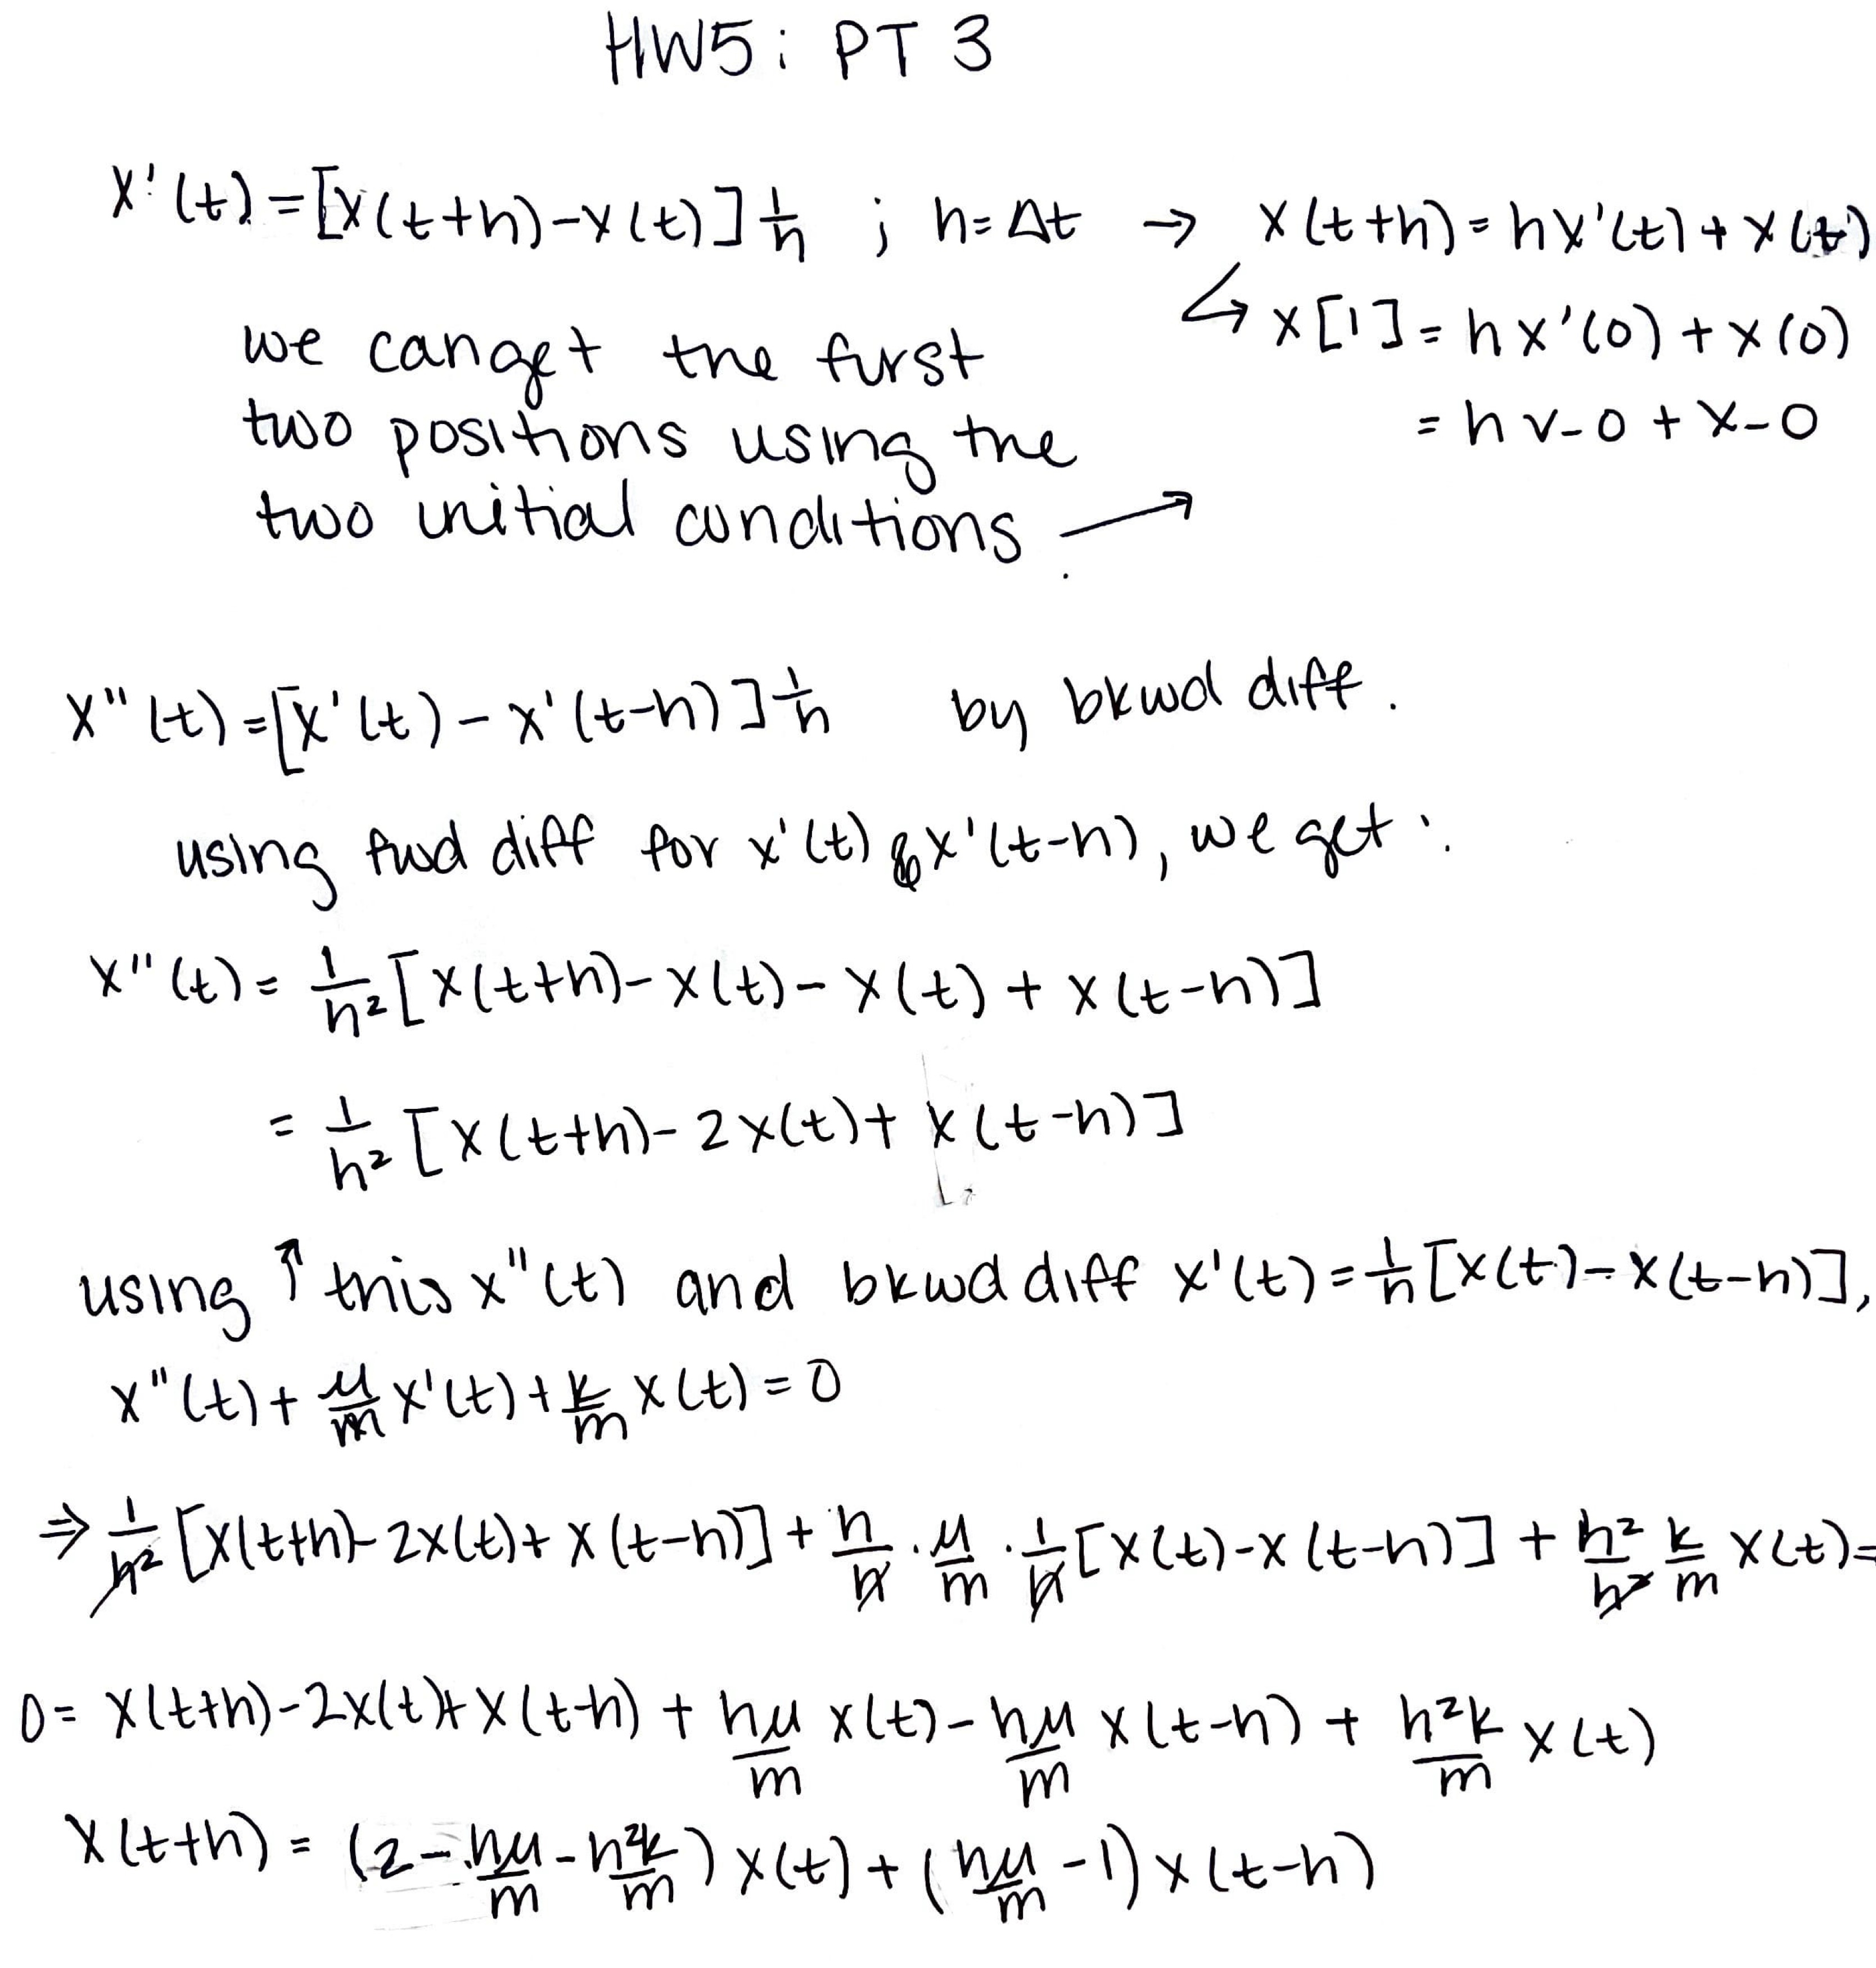 HW5: PT 3
x'(t) = [x(t+h) - x(t)] 1/h ; h = Δt → x(t+h) = hx'(t) + x(t)
↳ x[1] = hx'(0) + x(0)
= hv_0 + x_0
we can get the first
two positions using the
two initial conditions →
x''(t) = [x'(t) - x'(t-h)] 1/h by bkwd diff.
using fwd diff for x'(t) & x'(t-h), we get:
x''(t) = 1/h² [x(t+h) - x(t) - x(t) + x(t-h)]
= 1/h² [x(t+h) - 2x(t) + x(t-h)]
using ↑ this x''(t) and bkwd diff x'(t) = 1/h [x(t) - x(t-h)],
x''(t) + μ/m x'(t) + k/m x(t) = 0
⇒ 1/h² [x(t+h) - 2x(t) + x(t-h)] + h/h · μ/m · 1/h [x(t) - x(t-h)] + h²/h² k/m x(t) =
0 = x(t+h) - 2x(t) + x(t-h) + hμ/m x(t) - hμ/m x(t-h) + h²k/m x(t)
x(t+h) = (2 - hμ/m - h²k/m) x(t) + (hμ/m - 1) x(t-h)